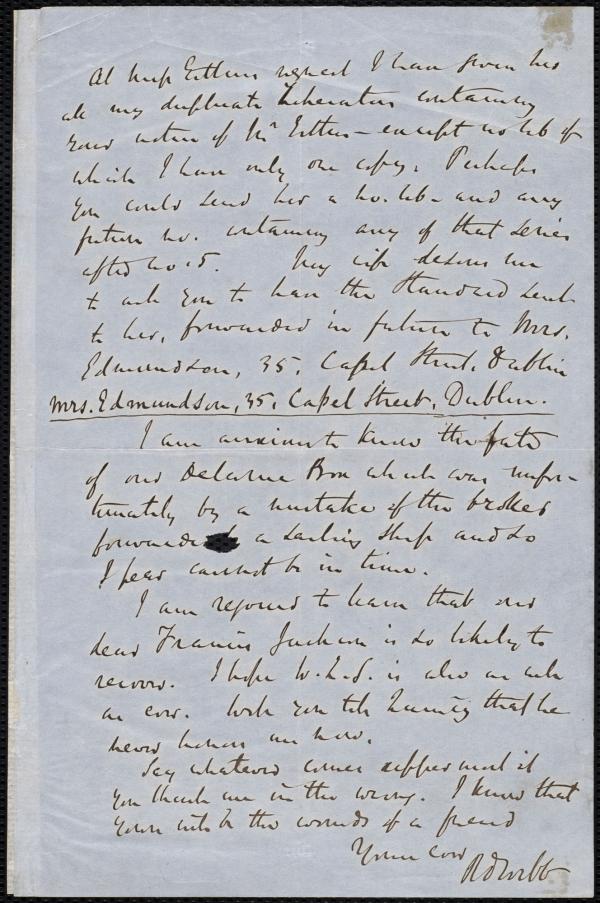 At Miss Estlin's request I have given her
all my duplicate Liberators containing
your notice of Mr Estlin - except no 46 of
which I have only one copy. Perhaps
you could send her a no. 46 - and any
future no. containing any of that series
after no 5. My wife desires me
to ask you to have the Standard sent
to her, forwarded in future to Mrs.
Edmundson, 35, Capel Street, Dublin
Mrs. Edmundson, 35, Capel Street, Dublin.
I am anxious to know the fate
of our Delarue Box which was unfor-
tunately by a mistake of the broker
forwarded a sailing ship and so
I fear cannot be in time.
I am rejoiced to learn that our
dear Francis Jackson is so likely to
recover. I hope
is also
Will you tell
that he
never honors me now.
Say whatever comes uppermost if
you think me in the wrong. I know that
yours will be the wounds of a friend
Yours ever
RDWebb